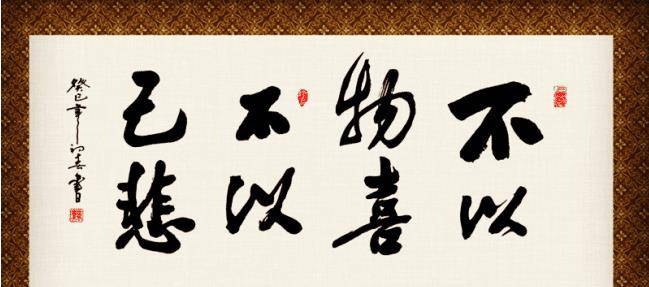 不以
物喜
不以
己悲
癸巳年初春書